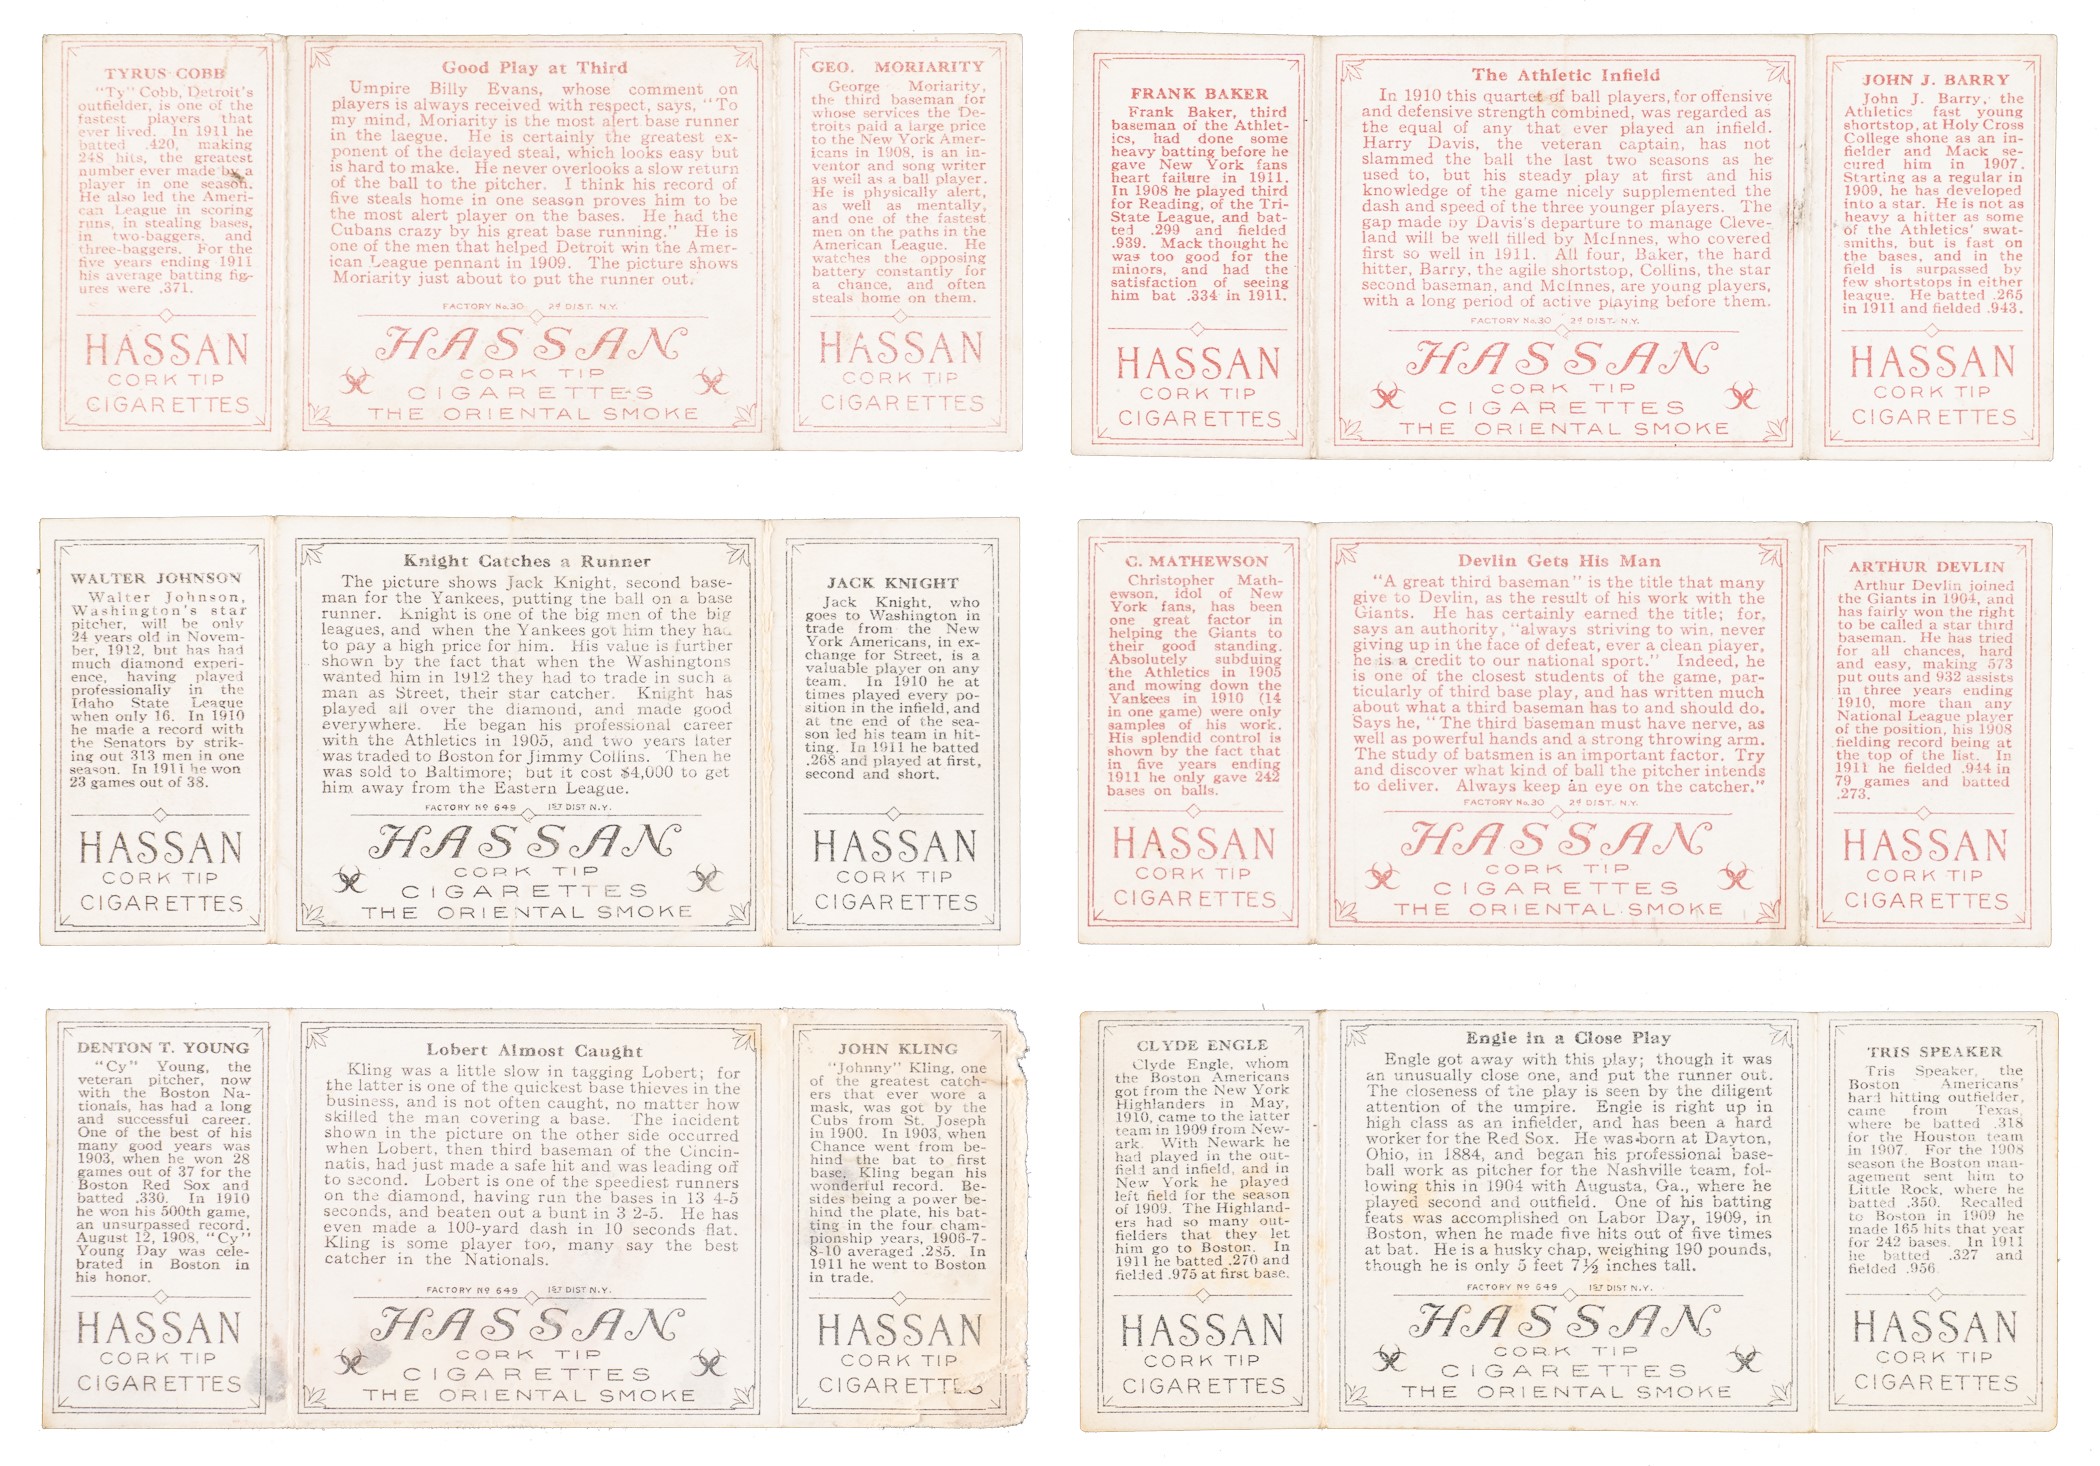 TYRUS COBB
"Ty" Cobb, Detroit's
outfielder, is one of the
fastest players that
ever lived. In 1911 he
batted .420, making
248 hits, the greatest
number ever made by a
player in one season.
He also led the Ameri-
can League in scoring
runs, in stealing bases,
in two-baggers, and
three-baggers. For the
five years ending 1911
his average batting fig-
ures were .371.
HASSAN
CORK TIP
CIGARETTES
Good Play at Third
Umpire Billy Evans, whose comment on
players is always received with respect, says, "To
my mind, Moriarity is the most alert base runner
in the laegue. He is certainly the greatest ex-
ponent of the delayed steal, which looks easy but
is hard to make. He never overlooks a slow return
of the ball to the pitcher. I think his record of
five steals home in one season proves him to be
the most alert player on the bases. He had the
Cubans crazy by his great base running." He is
one of the men that helped Detroit win the Amer-
ican League pennant in 1909. The picture shows
Moriarity just about to put the runner out.
FACTORY No. 30 2d DIST. N.Y.
HASSAN
CORK TIP
CIGARETTES
THE ORIENTAL SMOKE
GEO. MORIARITY
George Moriarity,
the third baseman for
whose services the De-
troits paid a large price
to the New York Amer-
icans in 1908, is an in-
ventor and song writer
as well as a ball player.
He is physically alert,
as well as mentally,
and one of the fastest
men on the paths in the
American League. He
watches the opposing
battery constantly for
a chance, and often
steals home on them.
HASSAN
CORK TIP
CIGARETTES
FRANK BAKER
Frank Baker, third
baseman of the Athlet-
ics, had done some
heavy batting before he
gave New York fans
heart failure in 1911.
In 1908 he played third
for Reading, of the Tri-
State League, and bat-
ted .299 and fielded
.939. Mack thought he
was too good for the
minors, and had the
satisfaction of seeing
him bat .334 in 1911.
HASSAN
CORK TIP
CIGARETTES
The Athletic Infield
In 1910 this quartet of ball players, for offensive
and defensive strength combined, was regarded as
the equal of any that ever played an infield.
Harry Davis, the veteran captain, has not
slammed the ball the last two seasons as he
used to, but his steady play at first and his
knowledge of the game nicely supplemented the
dash and speed of the three younger players. The
gap made by Davis's departure to manage Cleve-
land will be well filled by McInnes, who covered
first so well in 1911. All four, Baker, the hard
hitter, Barry, the agile shortstop, Collins, the star
second baseman, and McInnes, are young players,
with a long period of active playing before them.
FACTORY No. 30 2d DIST. N.Y.
HASSAN
CORK TIP
CIGARETTES
THE ORIENTAL SMOKE
JOHN J. BARRY
John J. Barry, the
Athletics fast young
shortstop, at Holy Cross
College shone as an in-
fielder and Mack se-
cured him in 1907.
Starting as a regular in
1909, he has developed
into a star. He is not as
heavy a hitter as some
of the Athletics' swat-
smiths, but is fast on
the bases, and in the
field is surpassed by
few shortstops in either
league. He batted .265
in 1911 and fielded .943.
HASSAN
CORK TIP
CIGARETTES
WALTER JOHNSON
Walter Johnson,
Washington's star
pitcher, will be only
24 years old in Novem-
ber, 1912, but has had
much diamond experi-
ence, having played
professionally in the
Idaho State League
when only 16. In 1910
he made a record with
the Senators by strik-
ing out 313 men in one
season. In 1911 he won
23 games out of 38.
HASSAN
CORK TIP
CIGARETTES
Knight Catches a Runner
The picture shows Jack Knight, second base-
man for the Yankees, putting the ball on a base
runner. Knight is one of the big men of the big
leagues, and when the Yankees got him they had
to pay a high price for him. His value is further
shown by the fact that when the Washingtons
wanted him in 1912 they had to trade in such a
man as Street, their star catcher. Knight has
played all over the diamond, and made good
everywhere. He began his professional career
with the Athletics in 1905, and two years later
was traded to Boston for Jimmy Collins. Then he
was sold to Baltimore; but it cost $4,000 to get
him away from the Eastern League.
FACTORY No 649 1st DIST N.Y.
HASSAN
CORK TIP
CIGARETTES
THE ORIENTAL SMOKE
JACK KNIGHT
Jack Knight, who
goes to Washington in
trade from the New
York Americans, in ex-
change for Street, is a
valuable player on any
team. In 1910 he at
times played every po-
sition in the infield, and
at the end of the sea-
son led his team in hit-
ting. In 1911 he batted
.268 and played at first,
second and short.
HASSAN
CORK TIP
CIGARETTES
C. MATHEWSON
Christopher Math-
ewson, idol of New
York fans, has been
one great factor in
helping the Giants to
their good standing.
Absolutely subduing
the Athletics in 1905
and mowing down the
Yankees in 1910 (14
in one game) were only
samples of his work.
His splendid control is
shown by the fact that
in five years ending
1911 he only gave 242
bases on balls.
HASSAN
CORK TIP
CIGARETTES
Devlin Gets His Man
"A great third baseman" is the title that many
give to Devlin, as the result of his work with the
Giants. He has certainly earned the title; for,
says an authority, "always striving to win, never
giving up in the face of defeat, ever a clean player,
he is a credit to our national sport." Indeed, he
is one of the closest students of the game, par-
ticularly of third base play, and has written much
about what a third baseman has to and should do.
Says he, "The third baseman must have nerve, as
well as powerful hands and a strong throwing arm.
The study of batsmen is an important factor. Try
and discover what kind of ball the pitcher intends
to deliver. Always keep an eye on the catcher."
FACTORY No. 30 2d DIST. N.Y.
HASSAN
CORK TIP
CIGARETTES
THE ORIENTAL SMOKE
ARTHUR DEVLIN
Arthur Devlin joined
the Giants in 1904, and
has fairly won the right
to be called a star third
baseman. He has tried
for all chances, hard
and easy, making 573
put outs and 932 assists
in three years ending
1910, more than any
National League player
of the position, his 1908
fielding record being at
the top of the list. In
1911 he fielded .944 in
79 games and batted
.273.
HASSAN
CORK TIP
CIGARETTES
DENTON T. YOUNG
"Cy" Young, the
veteran pitcher, now
with the Boston Na-
tionals, has had a long
and successful career.
One of the best of his
many good years was
1903, when he won 28
games out of 37 for the
Boston Red Sox and
batted .330. In 1910
he won his 500th game,
an unsurpassed record.
August 12, 1908, "Cy"
Young Day was cele-
brated in Boston in
his honor.
HASSAN
CORK TIP
CIGARETTES
Lobert Almost Caught
Kling was a little slow in tagging Lobert; for
the latter is one of the quickest base thieves in the
business, and is not often caught, no matter how
skilled the man covering a base. The incident
shown in the picture on the other side occurred
when Lobert, then third baseman of the Cincin-
natis, had just made a safe hit and was leading off
to second. Lobert is one of the speediest runners
on the diamond, having run the bases in 13 4-5
seconds, and beaten out a bunt in 3 2-5. He has
even made a 100-yard dash in 10 seconds flat.
Kling is some player too, many say the best
catcher in the Nationals.
FACTORY No 649 1st DIST N.Y.
HASSAN
CORK TIP
CIGARETTES
THE ORIENTAL SMOKE
JOHN KLING
"Johnny" Kling, one
of the greatest catch-
ers that ever wore a
mask, was got by the
Cubs from St. Joseph
in 1900. In 1903, when
Chance went from be-
hind the bat to first
base, Kling began his
wonderful record. Be-
sides being a power be-
hind the plate, his bat-
ting in the four cham-
pionship years, 1906-7-
8-10 averaged .285. In
1911 he went to Boston
in trade.
HASSAN
CORK TIP
CIGARETTES
CLYDE ENGLE
Clyde Engle, whom
the Boston Americans
got from the New York
Highlanders in May,
1910, came to the latter
team in 1909 from New-
ark. With Newark he
had played in the out-
field and infield, and in
New York he played
left field for the season
of 1909. The Highland-
ers had so many out-
fielders that they let
him go to Boston. In
1911 he batted .270 and
fielded .975 at first base.
HASSAN
CORK TIP
CIGARETTES
Engle in a Close Play
Engle got away with this play; though it was
an unusually close one, and put the runner out.
The closeness of the play is seen by the diligent
attention of the umpire. Engle is right up in
high class as an infielder, and has been a hard
worker for the Red Sox. He was born at Dayton,
Ohio, in 1884, and began his professional base-
ball work as pitcher for the Nashville team, fol-
lowing this in 1904 with Augusta, Ga., where he
played second and outfield. One of his batting
feats was accomplished on Labor Day, 1909, in
Boston, when he made five hits out of five times
at bat. He is a husky chap, weighing 190 pounds,
though he is only 5 feet 7½ inches tall.
FACTORY No 649 1st DIST N.Y.
HASSAN
CORK TIP
CIGARETTES
THE ORIENTAL SMOKE
TRIS SPEAKER
Tris Speaker, the
Boston Americans'
hard hitting outfielder,
came from Texas,
where he batted .318
for the Houston team
in 1907. For the 1908
season the Boston man-
agement sent him to
Little Rock, where he
batted .350. Recalled
to Boston in 1909 he
made 165 hits that year
for 242 bases. In 1911
he batted .327 and
fielded .956.
HASSAN
CORK TIP
CIGARETTES